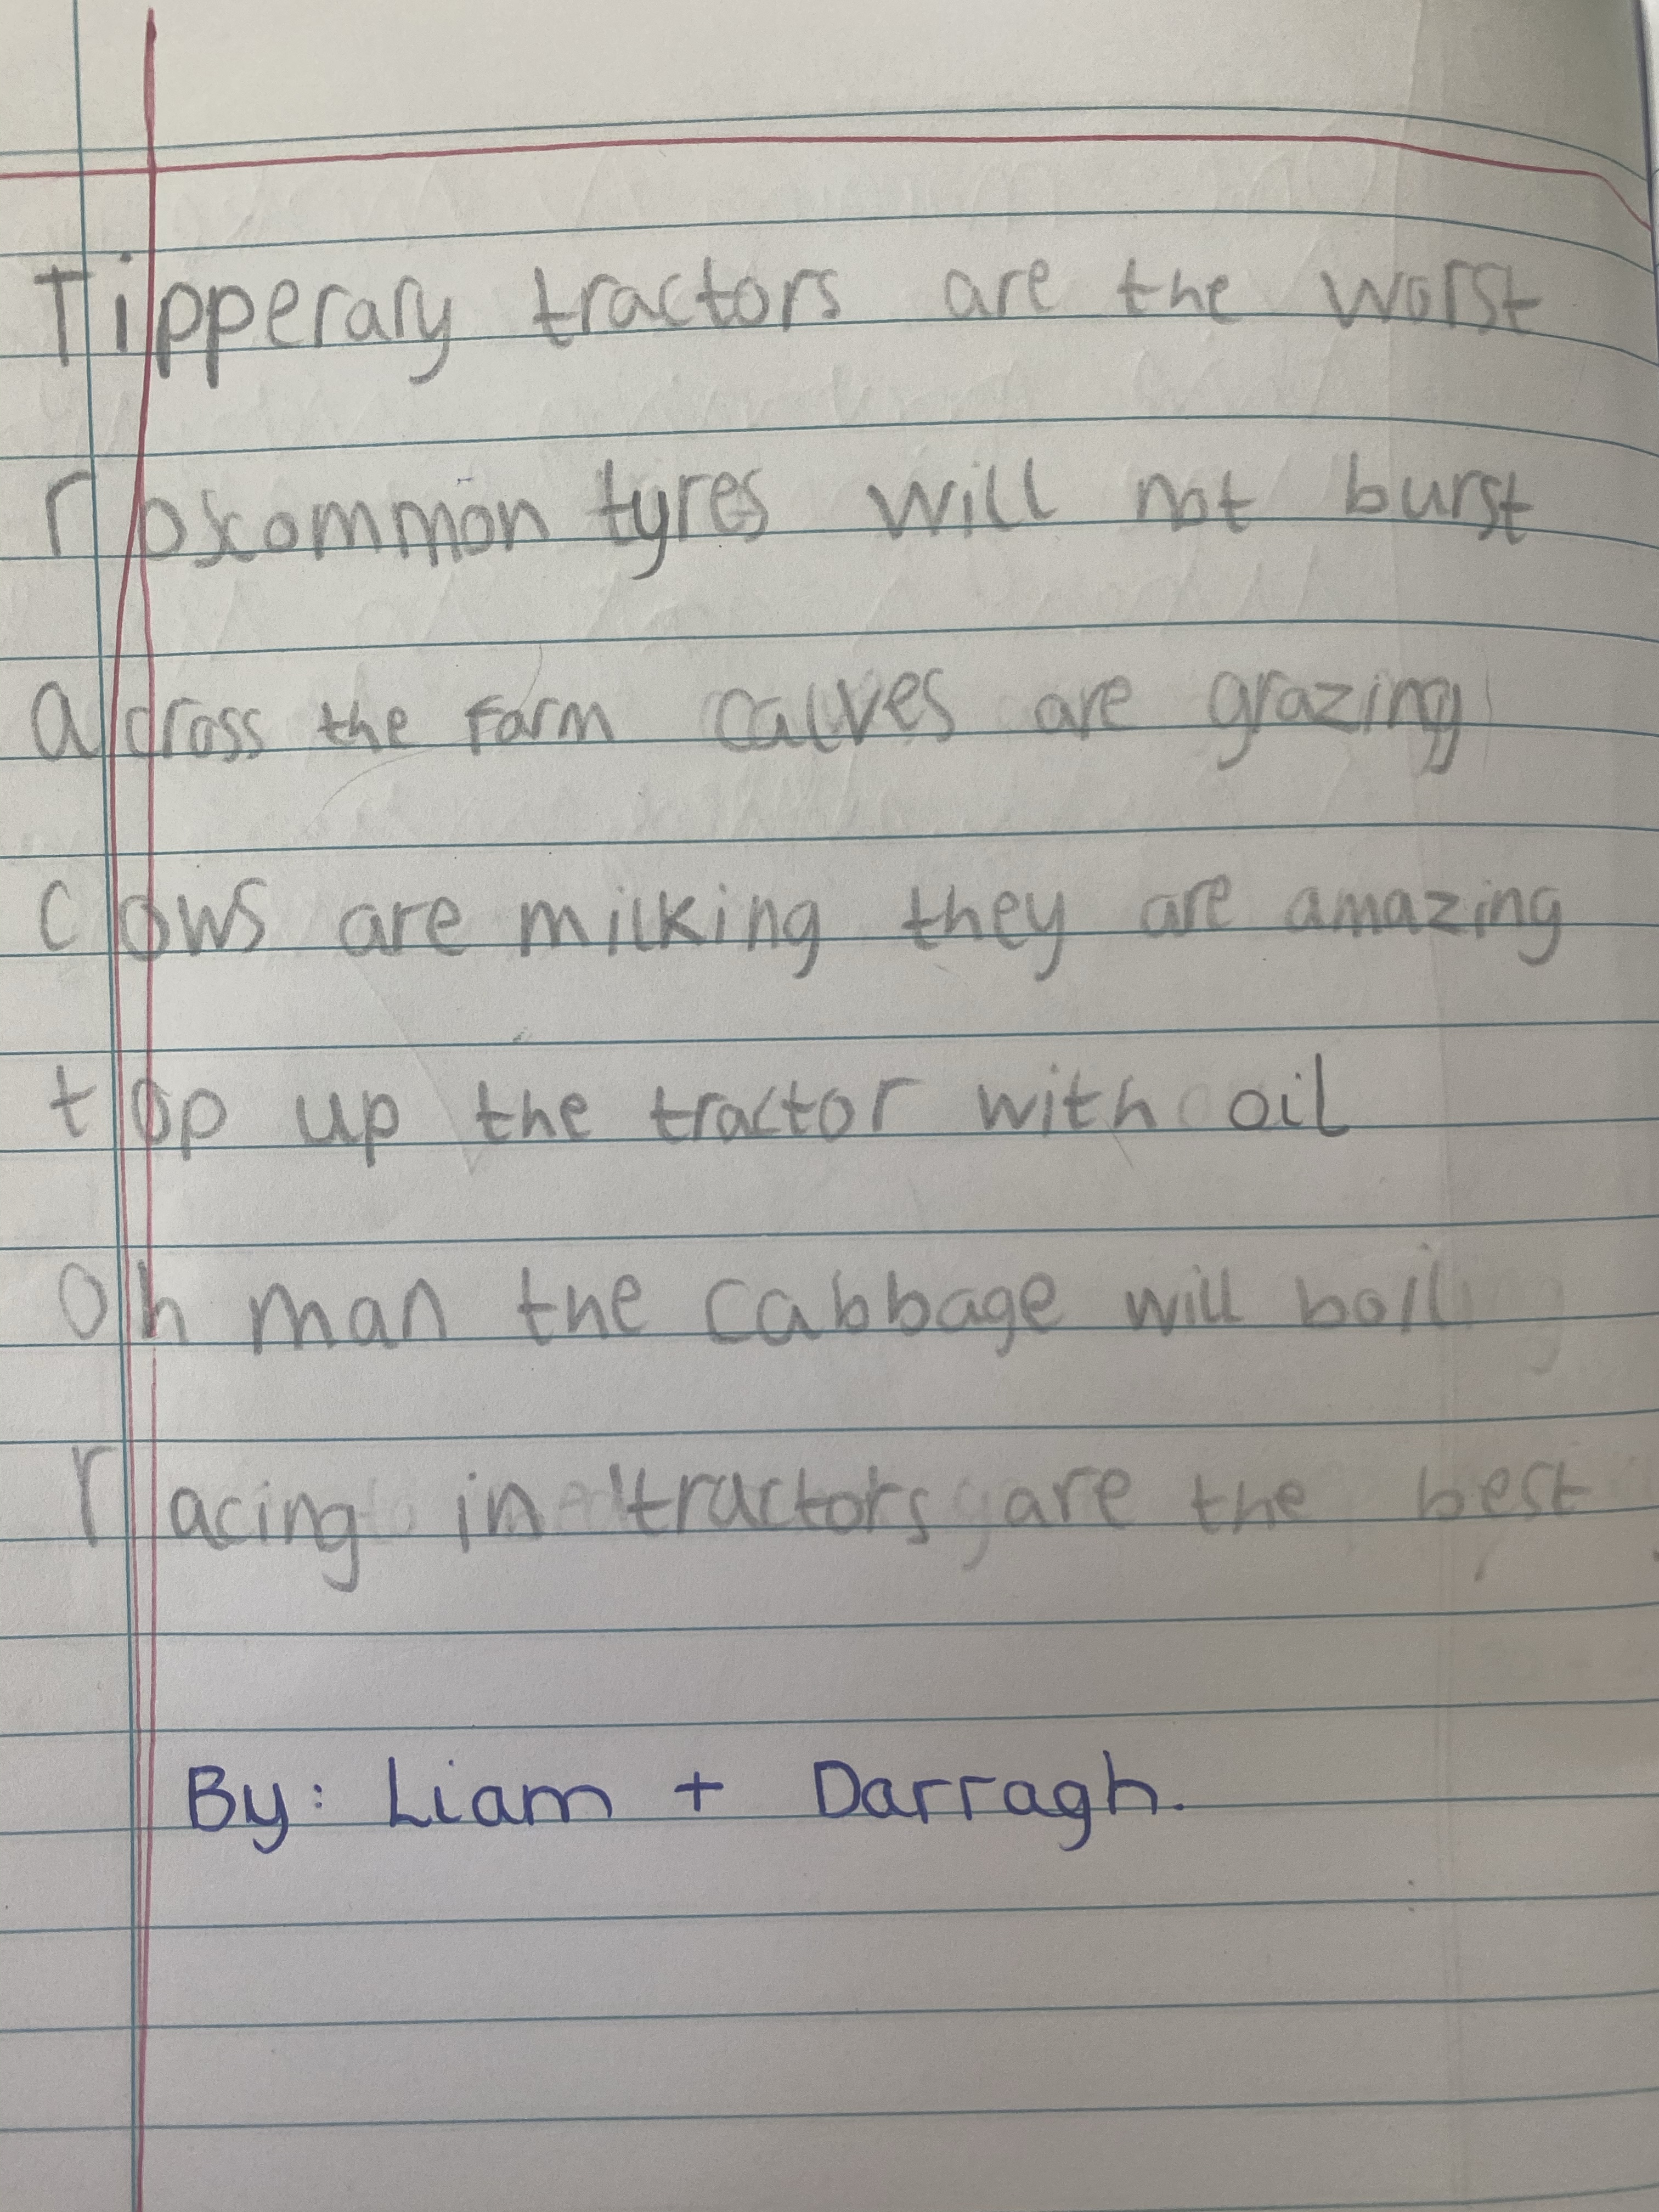 Tipperary tractors are the worst
roscommon tyres will not burst
across the farm calves are grazing
cows are milking they are amazing
top up the tractor with oil
oh man the cabbage will boil
racing in tractors are the best
By: Liam + Darragh.